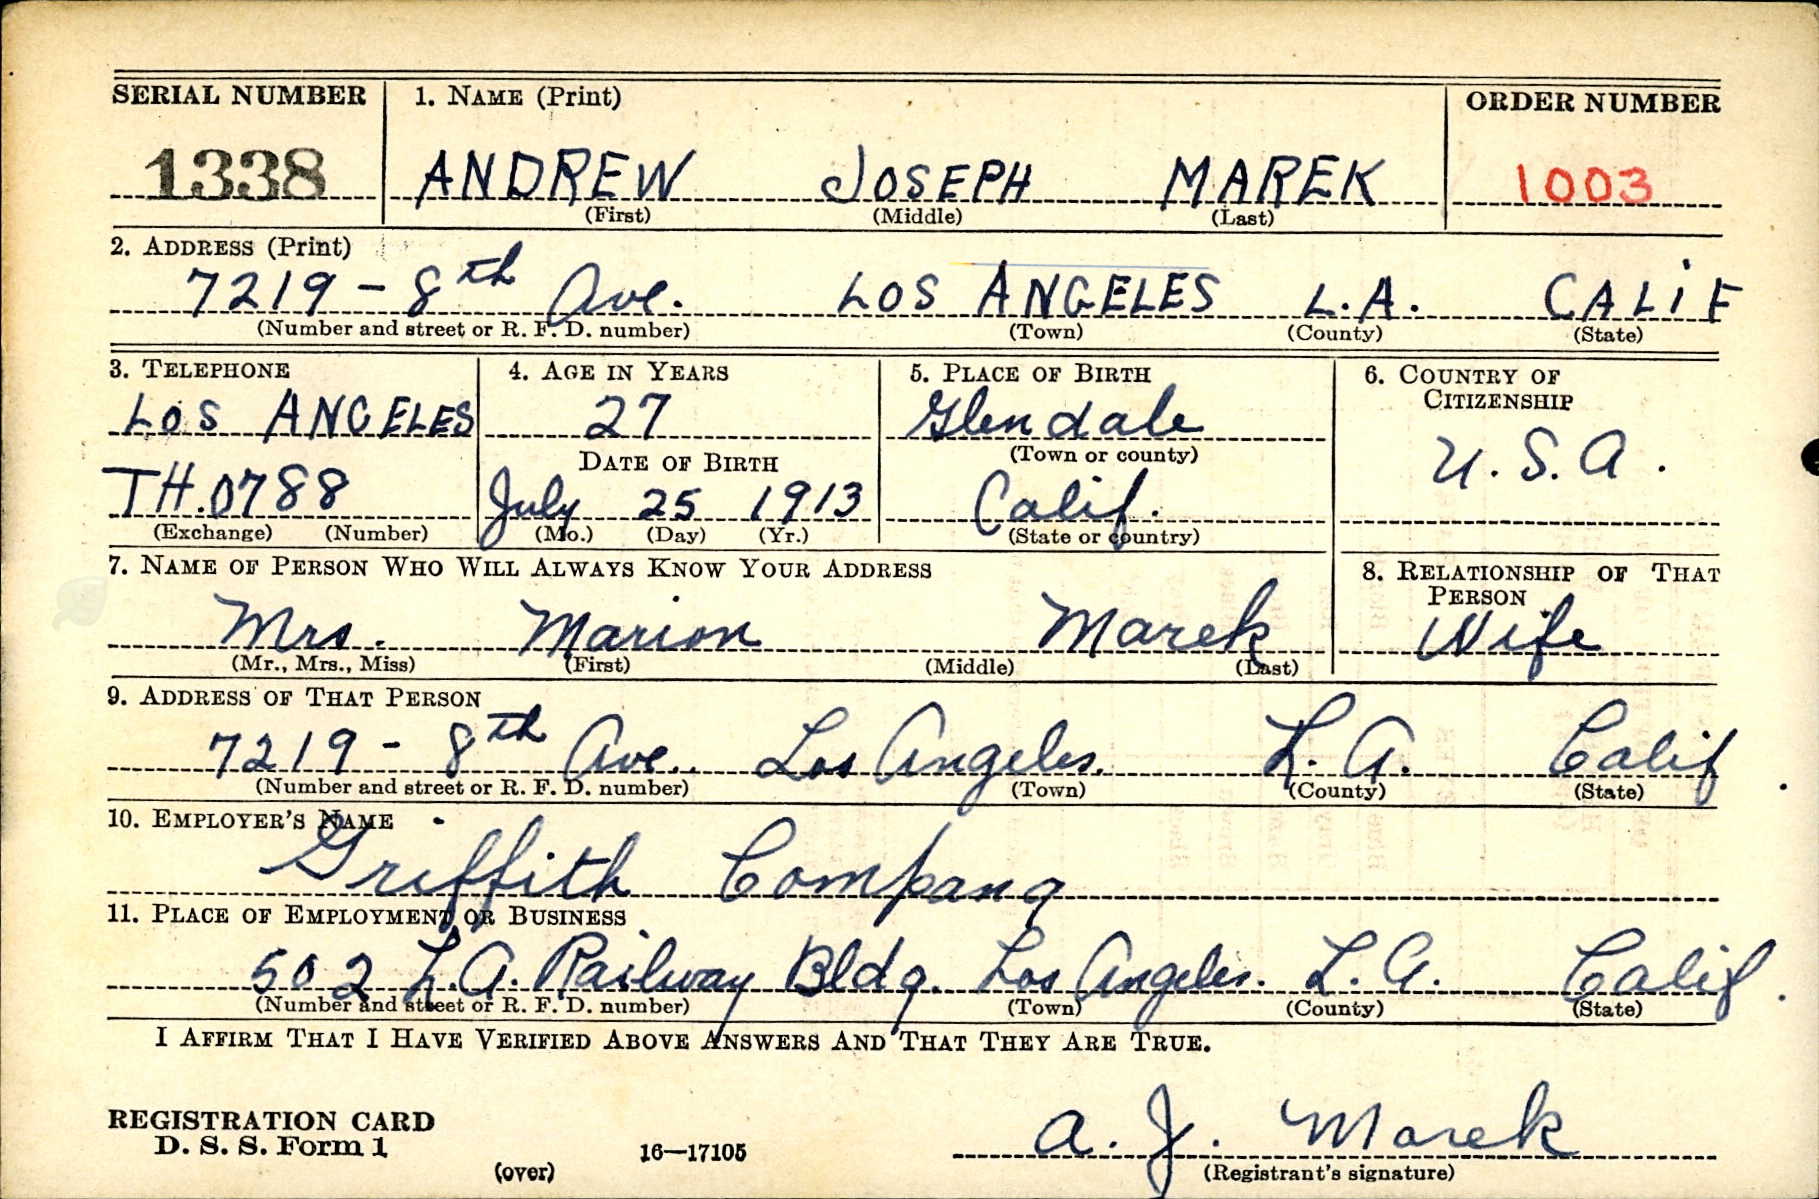 SERIAL NUMBER 1. NAME (Print) ORDER NUMBER
1338 ANDREW JOSEPH MAREK 1003
(First) (Middle) (Last)
2. ADDRESS (Print)
7219 - 8th Ave. LOS ANGELES L.A. CALIF
(Number and street or R. F. D. number) (Town) (County) (State)
3. TELEPHONE 4. AGE IN YEARS 5. PLACE OF BIRTH 6. COUNTRY OF
CITIZENSHIP
LOS ANGELES 27 Glendale
DATE OF BIRTH (Town or county) U. S. A.
TH.0788 July 25 1913 Calif.
(Exchange) (Number) (Mo.) (Day) (Yr.) (State or country)
7. NAME OF PERSON WHO WILL ALWAYS KNOW YOUR ADDRESS 8. RELATIONSHIP OF THAT
PERSON
Mrs. Marion Marek Wife
(Mr., Mrs., Miss) (First) (Middle) (Last)
9. ADDRESS OF THAT PERSON
7219 - 8th Ave. Los Angeles. L. A. Calif.
(Number and street or R. F. D. number) (Town) (County) (State)
10. EMPLOYER'S NAME
Griffith Company
11. PLACE OF EMPLOYMENT OR BUSINESS
502 L.A. Railway Bldg. Los Angeles. L. A. Calif.
(Number and street or R. F. D. number) (Town) (County) (State)
I AFFIRM THAT I HAVE VERIFIED ABOVE ANSWERS AND THAT THEY ARE TRUE.
REGISTRATION CARD
D. S. S. Form 1 16—17105 A. J. Marek
(over) (Registrant's signature)